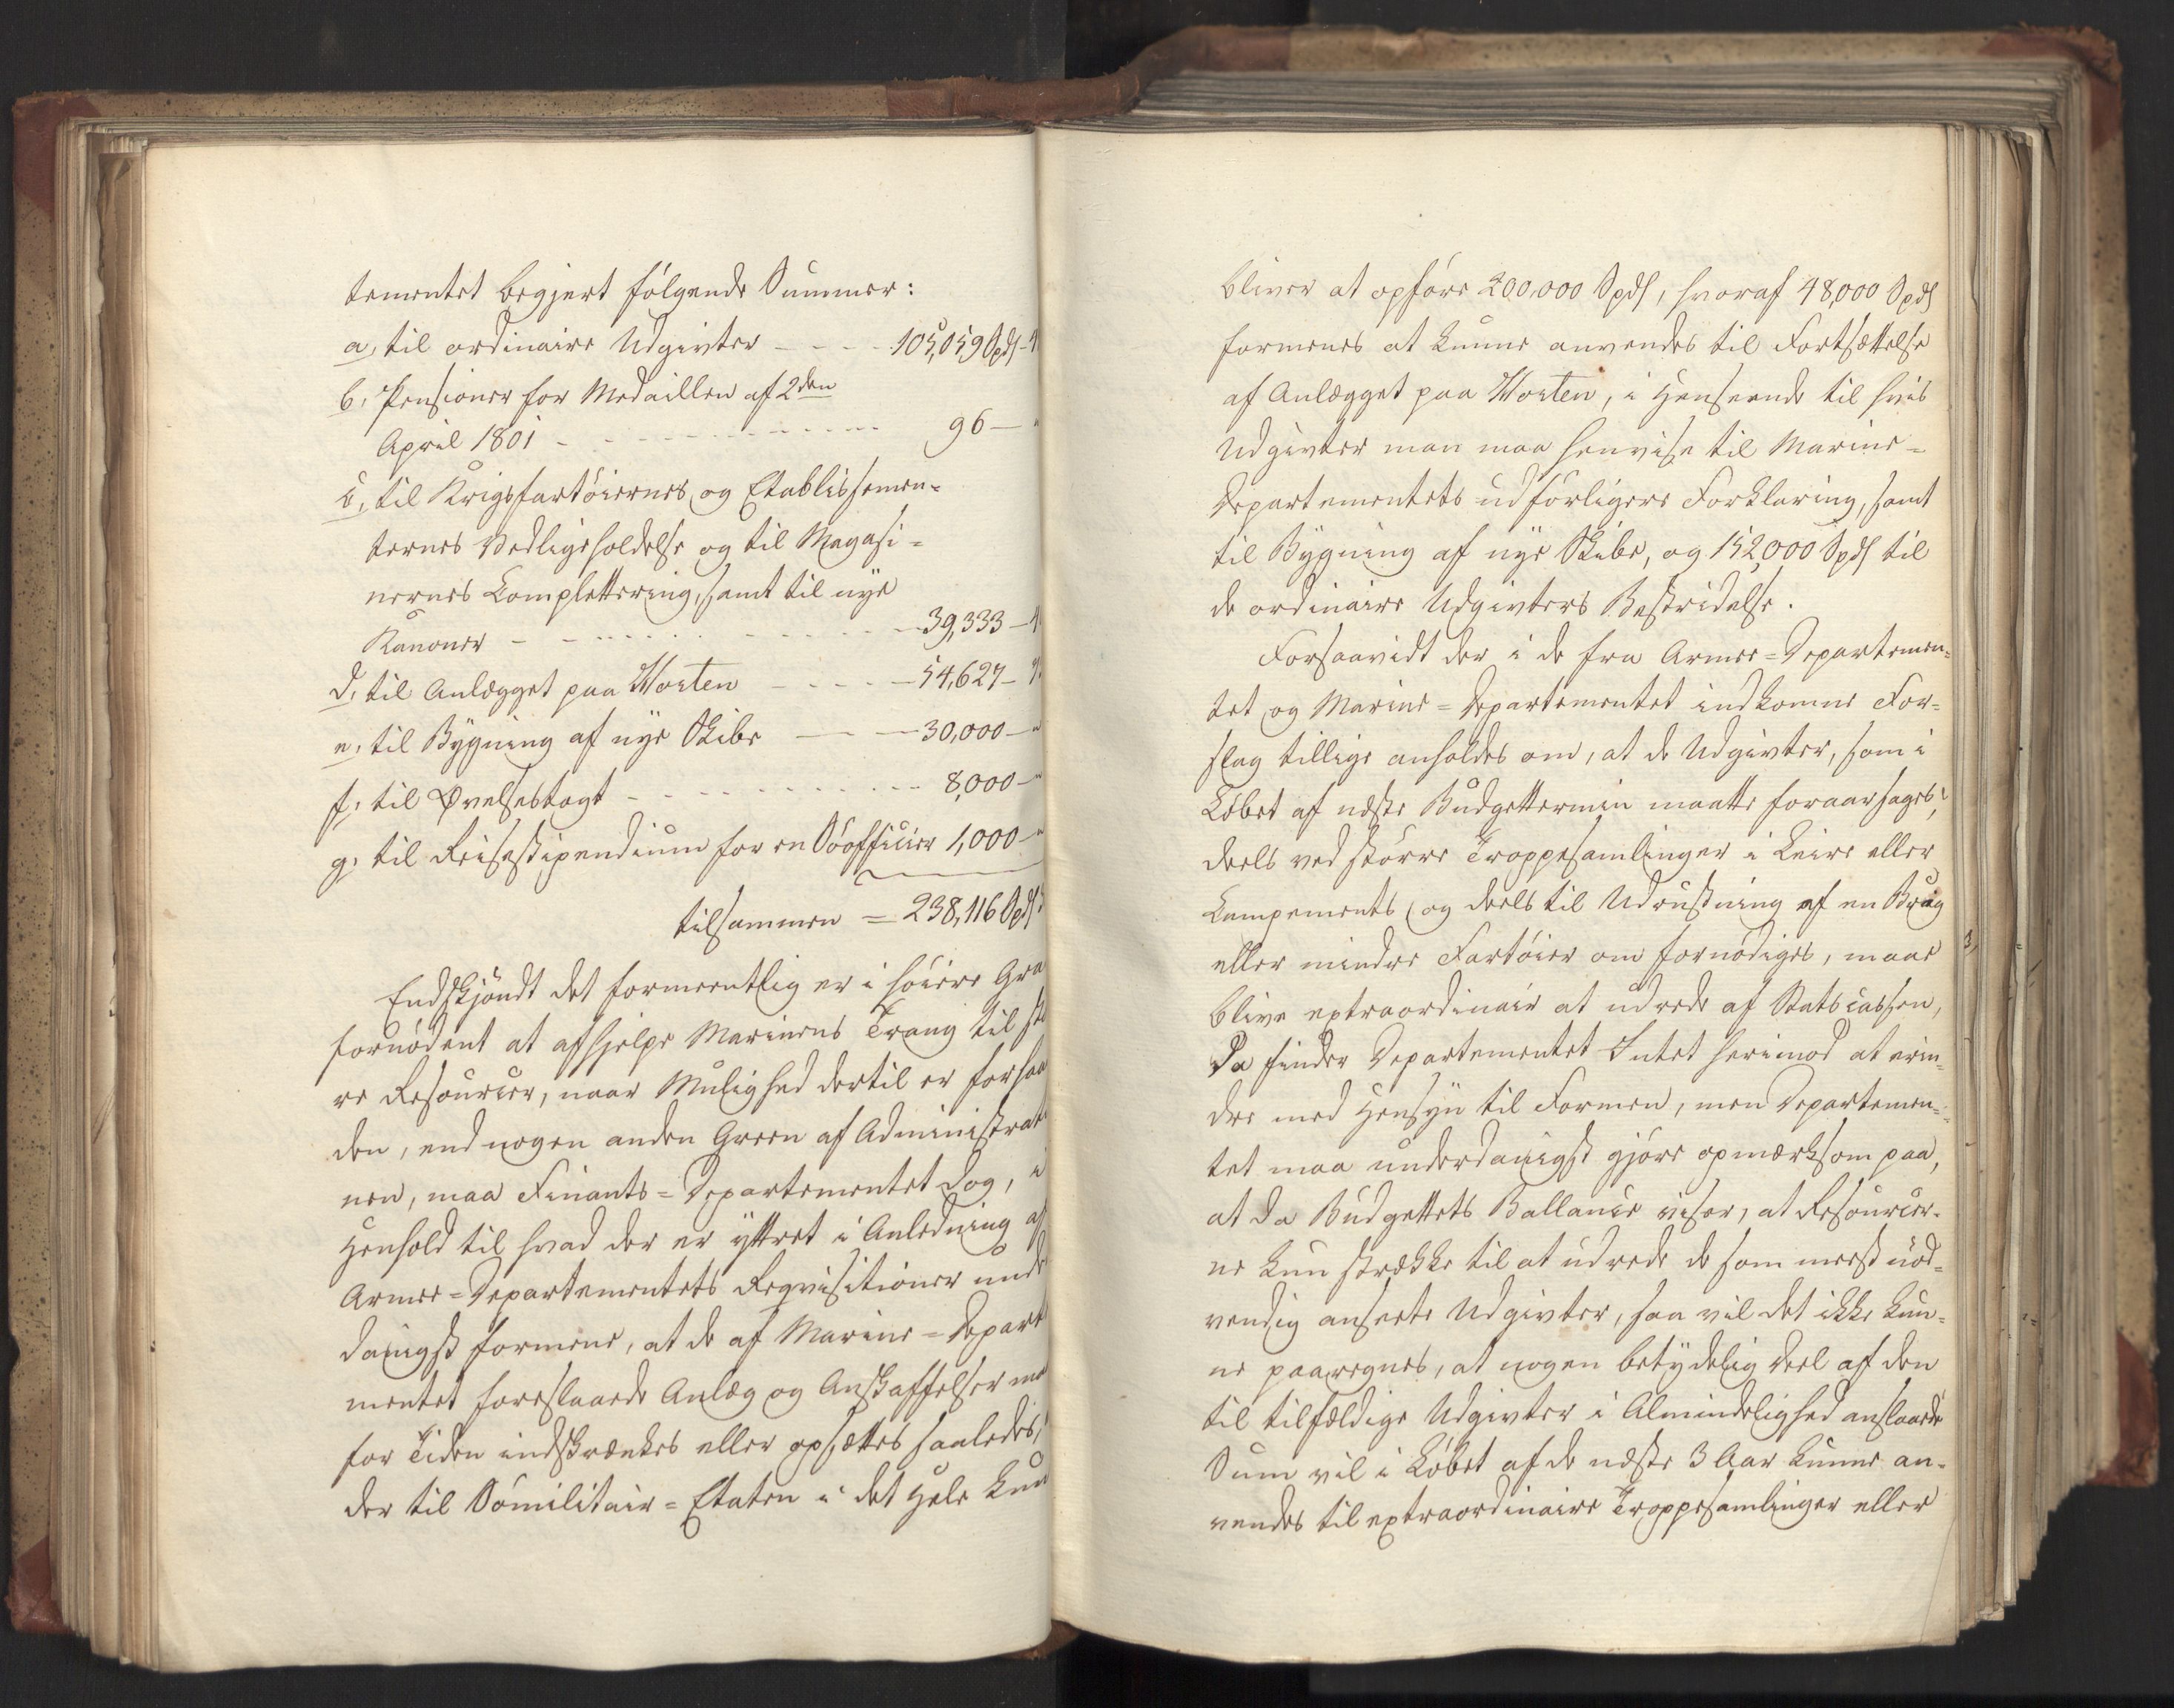 tementet begjert følgende Summer:
a, til ordinaire Udgivter - - - - 105,059 Spds -
b, Pensioner for Medaillen af 2den
April 1801 - - - - - - - - - - 96 - "
c, til Krigsfartøiernes og Etablissemen-
ternes Vedligeholdelse og til Magasi-
nernes Complettering, samt til nye
Kanoner - - - - - - - - - - 39,333 -
d, til Anlægget paa Horten - - - - 54,627 -
e, til Bygning af nye Skibe - - - 30,000 - "
f, til Øvelsestogt - - - - - - - - 8,000 - "
g, til Reisestipendium for en Søofficier 1,000 - "
tilsammen = 238,116 Spds
Endskjøndt det formeentlig er i høiere Gra
fornødent at afhjelpe Marinens Trang til stø
re Resourcer, naar Mulighed dertil er forhaa
den, end nogen anden Green af Administrati
nen, maa Finants-Departementet dog, i
Henhold til hvad der er yttret i Anledning af
Armee-Departementets Reqvisitioner unde
danigst formene, at de af Marine-Departe
mentet foreslaaede Anlæg og Anskaffelser maa
for Tiden indskrænkes eller opsættes saaledes,
der til Sømilitair-Etaten i det Hele kun
bliver at opføre 200,000 Spds, hvoraf 48,000 Spds
formenes at kunne anvendes til Fortsættelse
af Anlægget paa Horten, i Henseende til hvis
Udgivter man maa henvise til Marine-
Departementets udførligere Forklaring, samt
til Bygning af nye Skibe, og 152,000 Spds til
de ordinaire Udgivters Bestridelse.
Forsaavidt der i de fra Armee-Departemen-
tet og Marine-Departementet indkomne For-
slag tillige anholdes om, at de Udgivter, som i
Løbet af næste Budgettermin maatte foraarsages,
deels ved større Troppesamlinger i Leire eller
Campements og deels til Udrustning af en Brig
eller mindre Fartøier om fornødiges, maae
blive extraordinair at udrede af Statscassen,
da finder Departementet Intet herimod at erin-
dre med Hensyn til Formen, men Departemen-
tet maa underdanigst gjøre opmærksom paa,
at da Budgettets Ballance viser, at Resourcer-
ne kun strække til at udrede de som meest nød-
vendig anseete Udgivter, saa vil det ikke kun-
ne paaregnes, at nogen betydelig Deel af den
til tilfældige Udgivter i Almindelighed anslaaede
Sum vil i Løbet af de næste 3 Aar kunne an-
vendes til extraordinaire Troppesamlinger eller